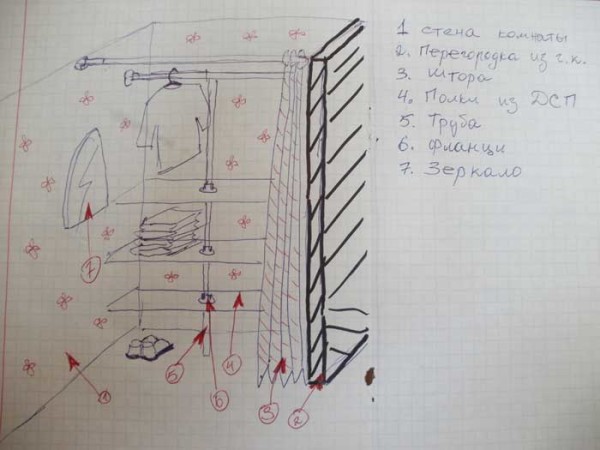 1 стена комнаты
2. Перегородка из г.к.
3. Штора
4. Полки из ДСП
5. Труба
6. Фланци
7. Зеркало
7
1
5
6
4
3
2